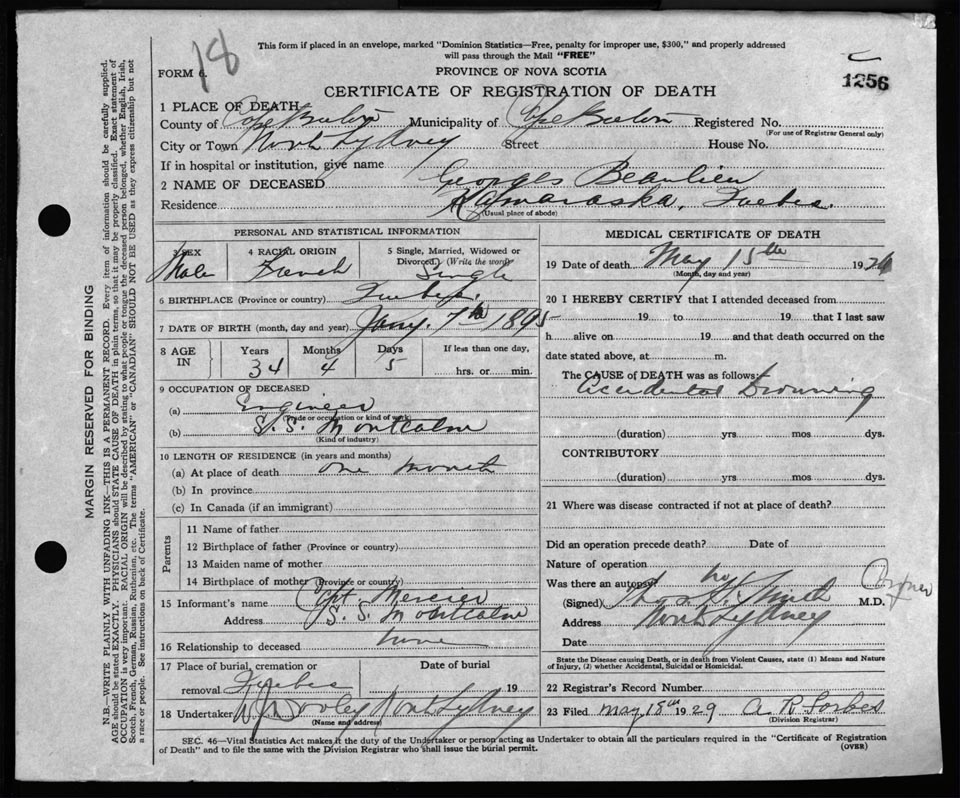 18
This form if placed in an envelope, marked "Dominion Statistics—Free, penalty for improper use, $300," and properly addressed
will pass through the Mail "FREE"
FORM 6.
PROVINCE OF NOVA SCOTIA
1256
CERTIFICATE OF REGISTRATION OF DEATH
1 PLACE OF DEATH
County of Cape Breton Municipality of Cape Breton Registered No.
(For use of Registrar General only)
City or Town North Sydney Street House No.
If in hospital or institution, give name
2 NAME OF DECEASED Georges Beaulieu
Residence Kamaraska, Quebec.
(Usual place of abode)
PERSONAL AND STATISTICAL INFORMATION
3 SEX Male
4 RACIAL ORIGIN French
5 Single, Married, Widowed or
Divorced (Write the word) Single
6 BIRTHPLACE (Province or country) Quebec.
7 DATE OF BIRTH (month, day and year) Jany. 7th 1895
8 AGE IN Years 34 Months 4 Days 5 If less than one day, hrs. or min.
9 OCCUPATION OF DECEASED
(a) Engineer
(Trade or occupation or kind of work)
(b) S.S. Montcalm
(Kind of industry)
10 LENGTH OF RESIDENCE (in years and months)
(a) At place of death one month
(b) In province
(c) In Canada (if an immigrant)
Parents
11 Name of father
12 Birthplace of father (Province or country)
13 Maiden name of mother
14 Birthplace of mother (Province or country)
15 Informant's name Capt. Mercier
Address S.S. Montcalm
16 Relationship to deceased none
17 Place of burial, cremation or Date of burial
removal Quebec 19
18 Undertaker W J Dooley North Sydney
(Name and address)
MEDICAL CERTIFICATE OF DEATH
19 Date of death May 15th 192
(Month, day and year)
20 I HEREBY CERTIFY that I attended deceased from
19 to 19 that I last saw
h alive on 19 and that death occurred on the
date stated above, at m.
The CAUSE of DEATH was as follows:
Accidental Drowning
(duration) yrs mos dys.
CONTRIBUTORY
(duration) yrs mos dys.
21 Where was disease contracted if not at place of death?
Did an operation precede death? Date of
Nature of operation
Was there an autopsy? no
(Signed) M.D. Coroner
Address North Sydney
Date
State the Disease causing Death, or in death from Violent Causes, state (1) Means and Nature
of Injury, (2) whether Accidental, Suicidal or Homicidal.
22 Registrar's Record Number
23 Filed May 18th 1929 A. R. Forbes
(Division Registrar)
SEC. 46—Vital Statistics Act makes it the duty of the Undertaker or person acting as Undertaker to obtain all the particulars required in the "Certificate of Registration
of Death" and to file the same with the Division Registrar who shall issue the burial permit.
(OVER)
MARGIN RESERVED FOR BINDING
N.B.—WRITE PLAINLY WITH UNFADING INK—THIS IS A PERMANENT RECORD. Every item of information should be carefully supplied.
AGE should be stated EXACTLY. PHYSICIANS should STATE CAUSE OF DEATH in plain terms, so that it may be properly classified. Exact statement of
OCCUPATION is very important. RACIAL ORIGIN will be described by stating to what people or tongue the deceased person belonged, whether English, Irish,
Scotch, French, German, Russian, Ruthenian, etc. The terms "AMERICAN" or "CANADIAN" SHOULD NOT BE USED as they express citizenship but not
a race or people. See instructions on back of Certificate.